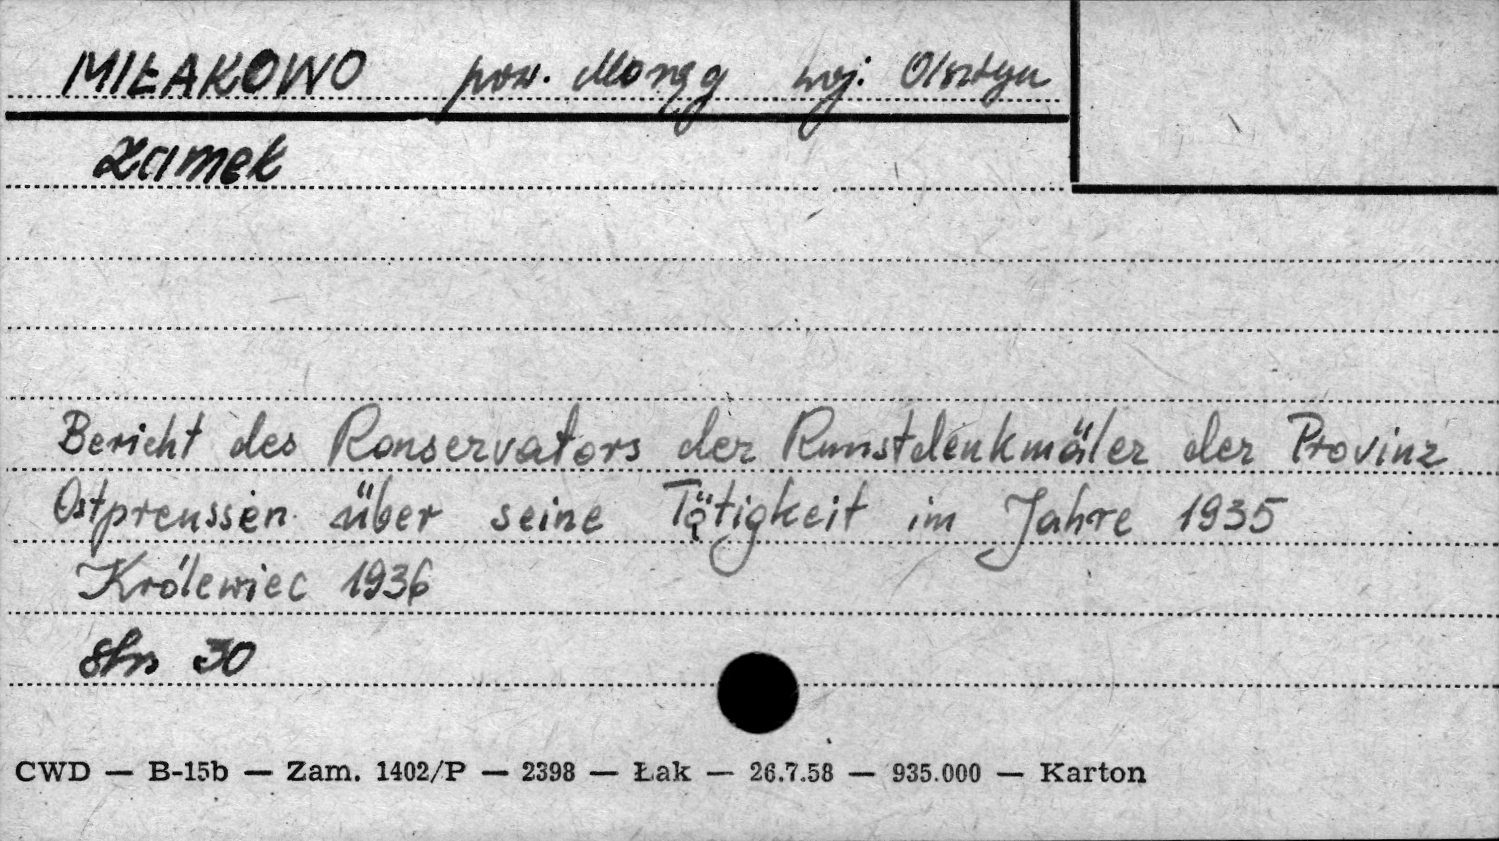 MIŁAKOWO pow. Morąg woj. Olsztyn
Zamek
Bericht des Konservators der Kunstdenkmäler der Provinz
Ostpreussen über seine Tätigkeit im Jahre 1935
Królewiec 1936
str 30
CWD — B-15b — Zam. 1402/P — 2398 — Łak — 26.7.58 — 935.000 — Karton